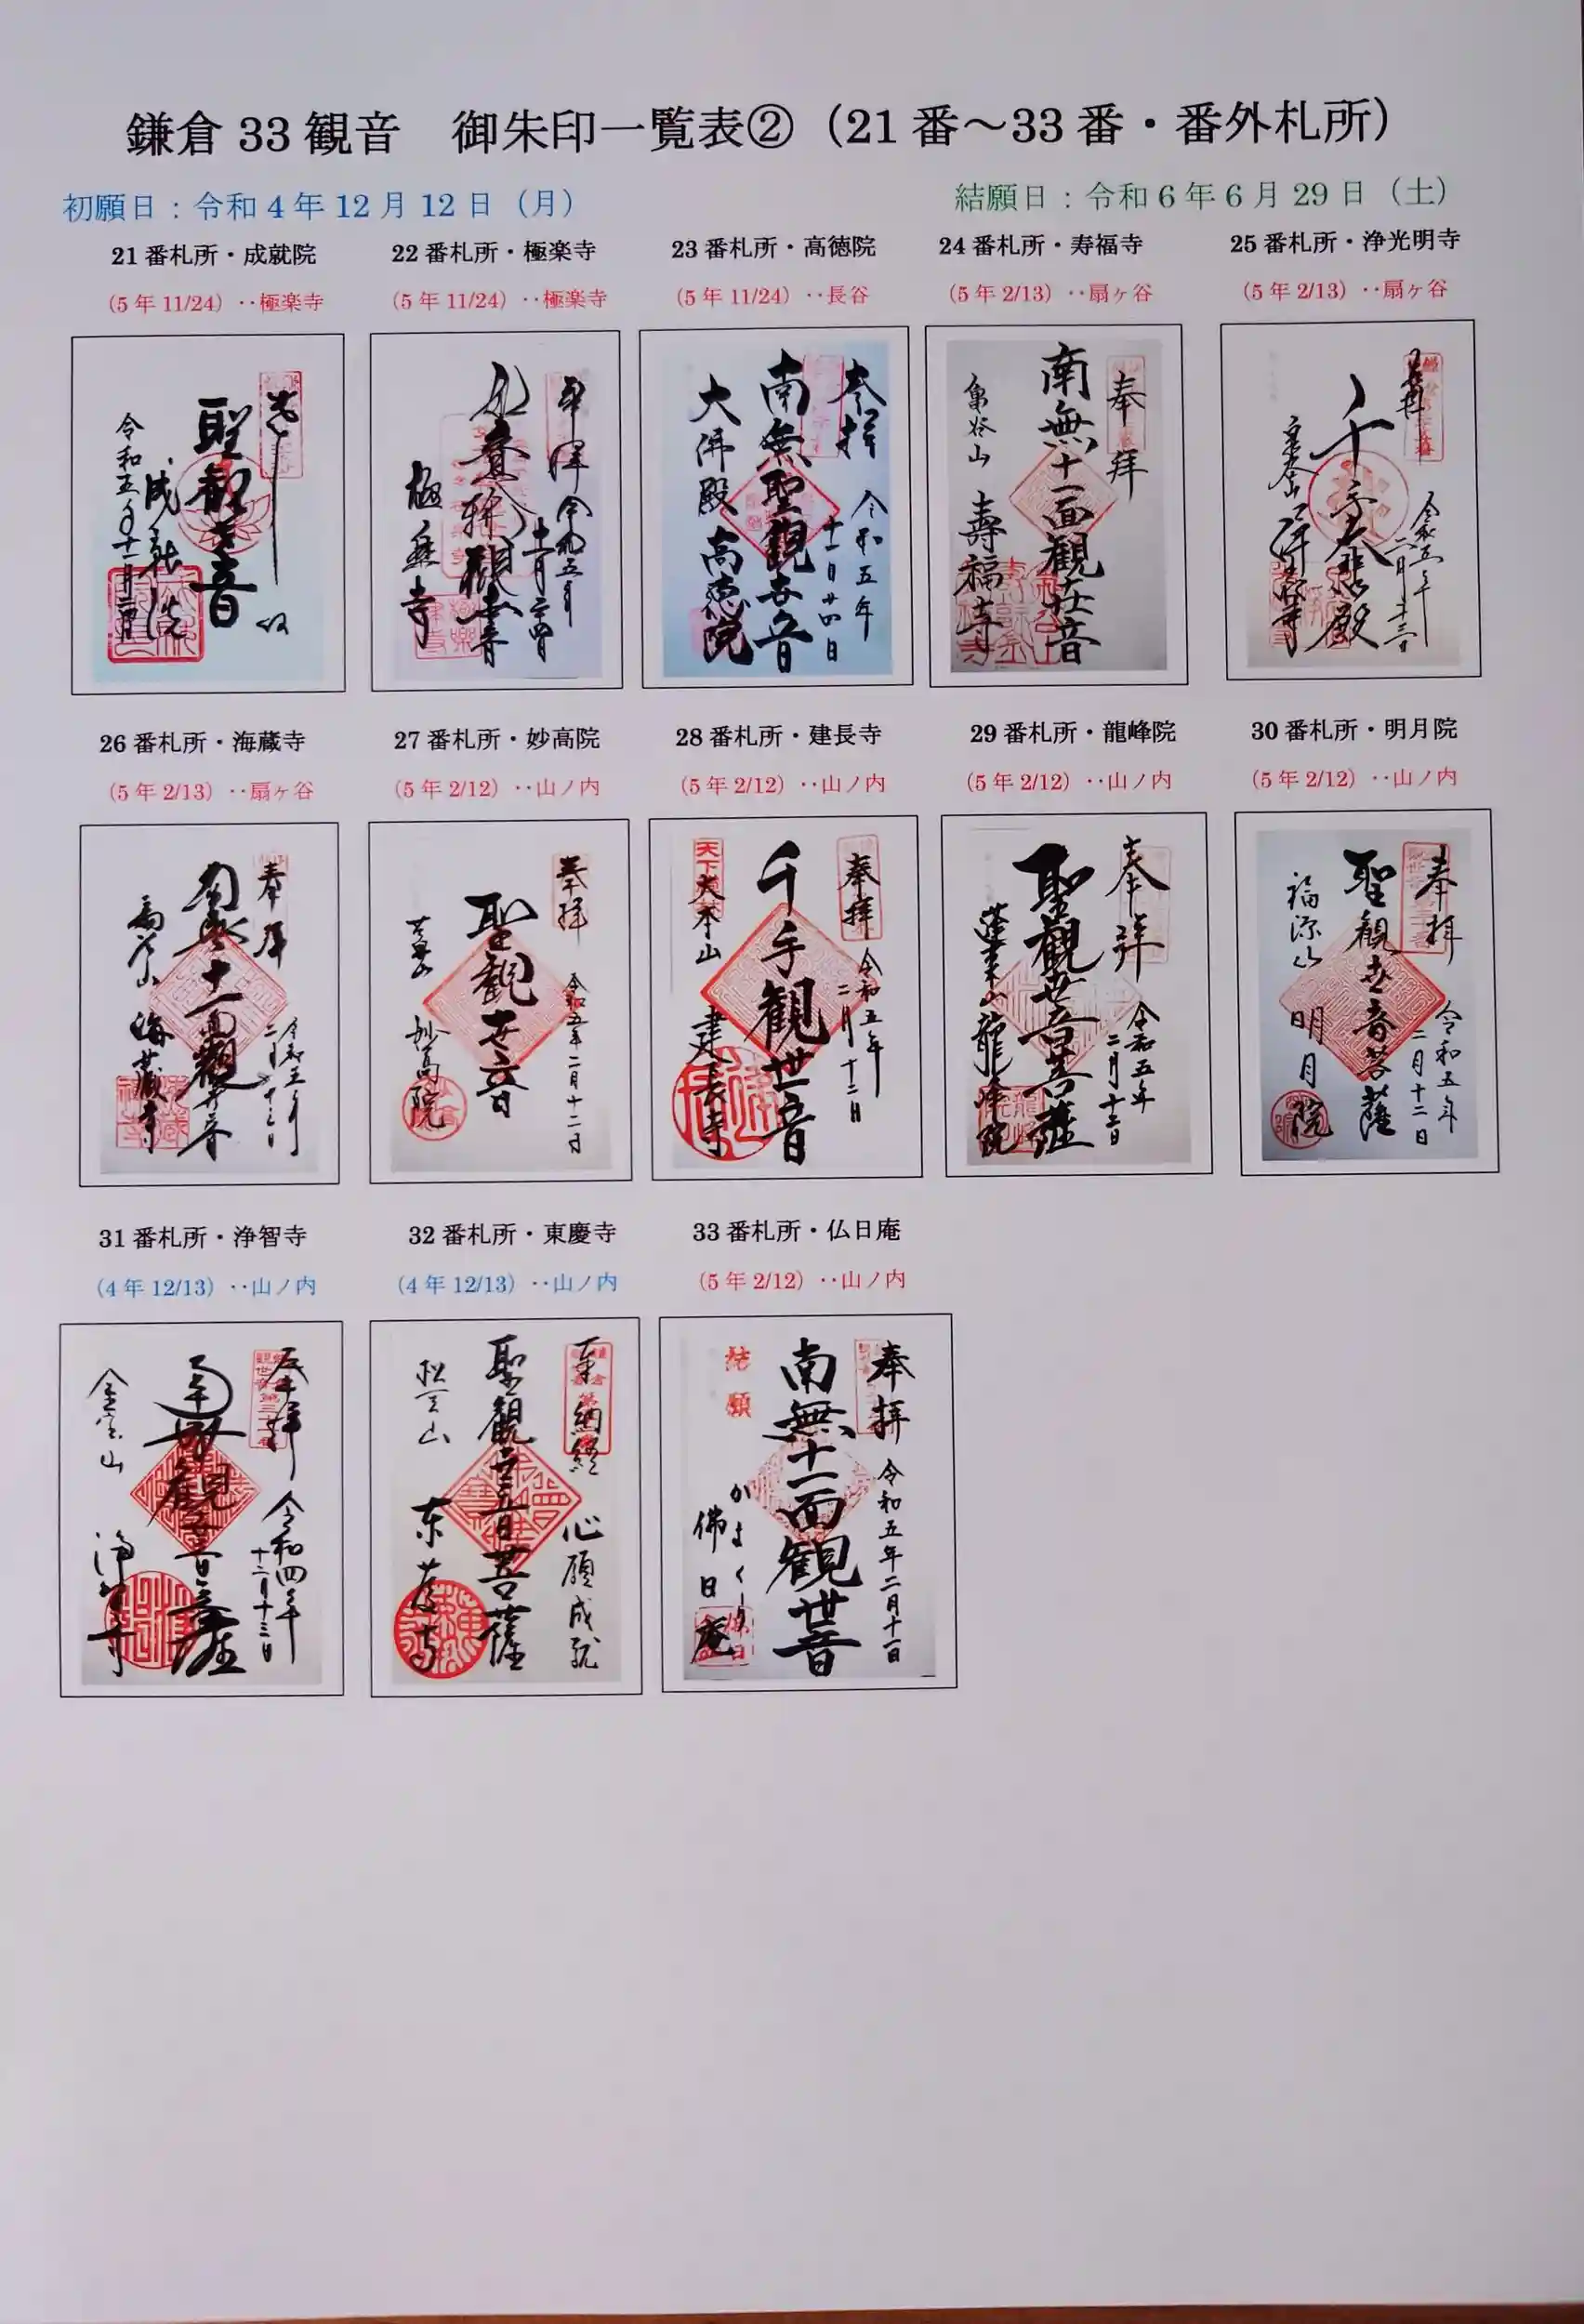 鎌倉 33 観音　御朱印一覧表②（21 番～33 番・番外札所）
初願日：令和 4 年 12 月 12 日（月）
結願日：令和 6 年 6 月 29 日（土）
21 番札所・成就院
(5 年 11/24) ‥極楽寺
聖観世音
成就院
22 番札所・極楽寺
(5 年 11/24) ‥極楽寺
奉拝
極楽寺
23 番札所・高徳院
(5 年 11/24) ‥長谷
奉拝
令和五年
十一月廿四日
南無聖観世音
大佛殿
高徳院
24 番札所・寿福寺
(5 年 2/13) ‥扇ヶ谷
奉拝
南無十一面観世音
亀谷山
壽福寺
25 番札所・浄光明寺
(5 年 2/13) ‥扇ヶ谷
26 番札所・海蔵寺
(5 年 2/13) ‥扇ヶ谷
奉拝
海蔵寺
27 番札所・妙高院
(5 年 2/12) ‥山ノ内
奉拝
令和五年二月十二日
聖観世音
妙高院
28 番札所・建長寺
(5 年 2/12) ‥山ノ内
奉拝
令和五年
二月十二日
千手観世音
大本山
建長寺
29 番札所・龍峰院
(5 年 2/12) ‥山ノ内
奉拝
令和五年
二月十二日
聖観世音菩薩
蓬莱山
龍峰院
30 番札所・明月院
(5 年 2/12) ‥山ノ内
奉拝
令和五年
二月十二日
聖観世音菩薩
福源山
明月院
31 番札所・浄智寺
(4 年 12/13) ‥山ノ内
奉拝
令和四年
十二月十三日
金宝山
浄智寺
32 番札所・東慶寺
(4 年 12/13) ‥山ノ内
奉納経
心願成就
聖観世音菩薩
松岡山
東慶寺
33 番札所・仏日庵
(5 年 2/12) ‥山ノ内
奉拝
南無十一面観世音
結願
かまくら
佛日庵